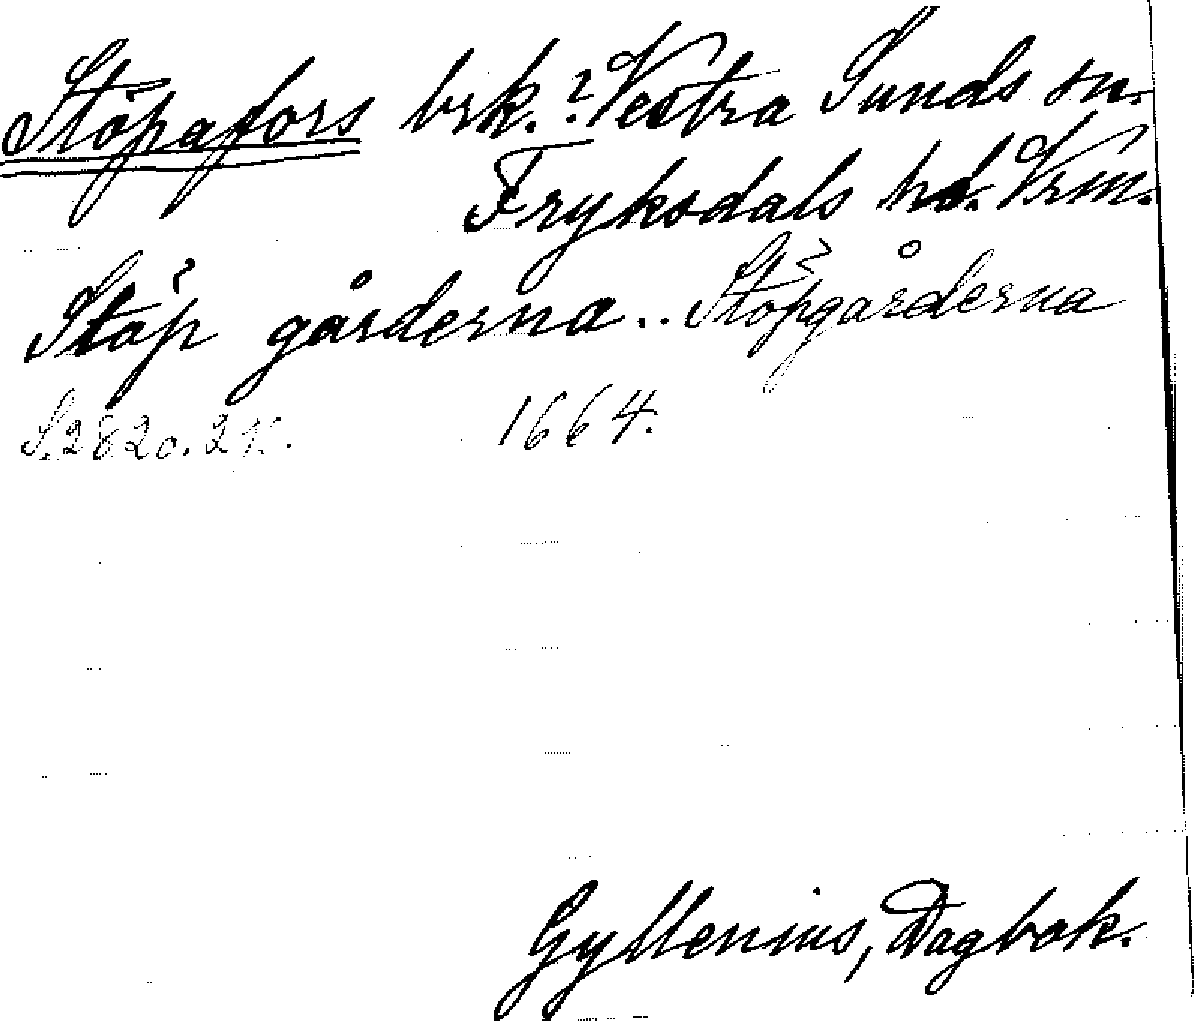 Stöpafors brk.? Vestra Sunds sn.
Fryksdals hd. Vrm.
Stöp gårderna .. Stöpgårderna
S. 282 o. 2 1664.
Gyllenius, Dagbok.